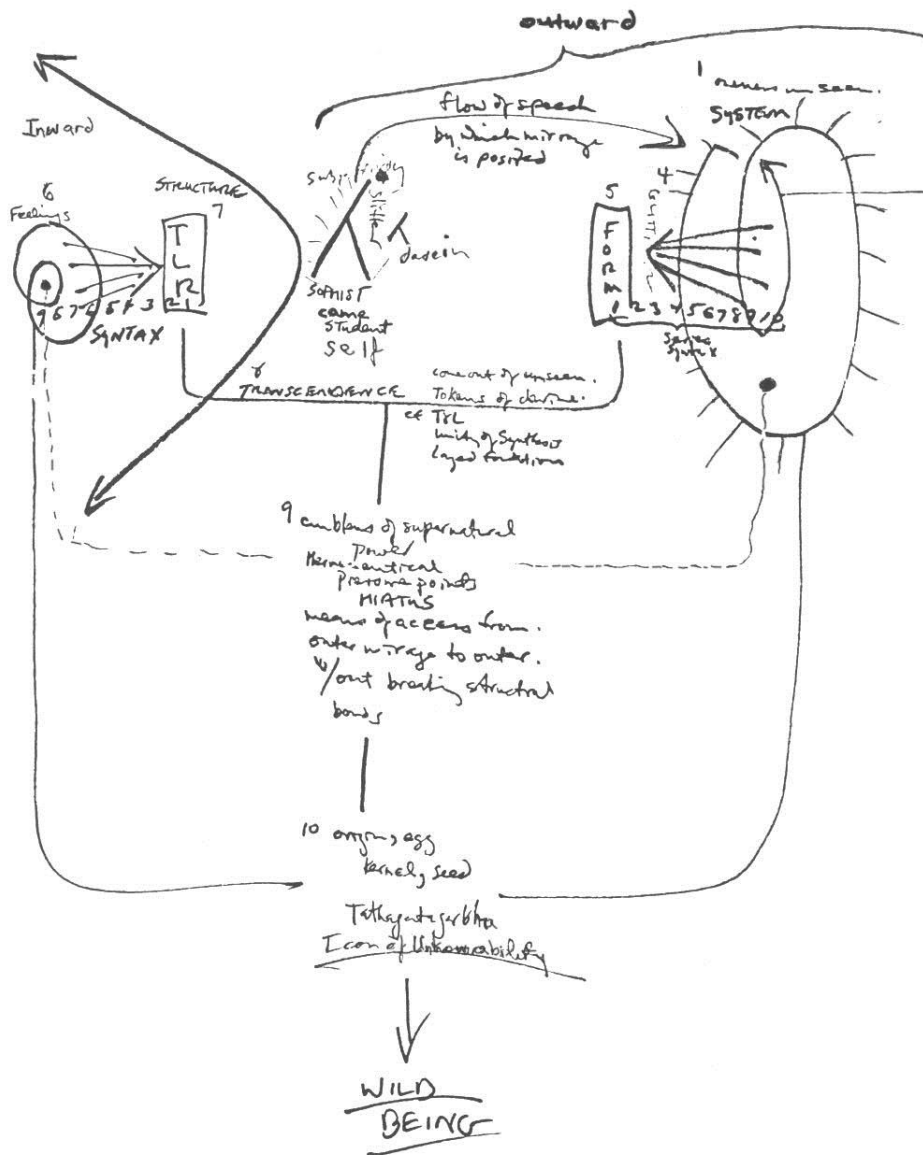 outward
1 oneness unseen.
SYSTEM
flow of speech
by which mirage
is posited
Inward
6
Feelings
STRUCTURE
7
T
L
R
1
SYNTAX
dasein
SOPHIST
came
student
self
5
F
O
R
M
4
1 2 3 4 5 6 7 8 9 10
Series
Syntax
8
TRANSCENDENCE
come out of unseen.
Tokens of
cf
Unity of Synthesis
9 emblems of supernatural
power
Hermeneutical
points
HIATUS
means of access from.
outer mirage to outer.
w/out breaking structral
bonds
10 origin, egg
kernel, seed
Tathagatagarbha
Icon of Unknowability
WILD
BEING